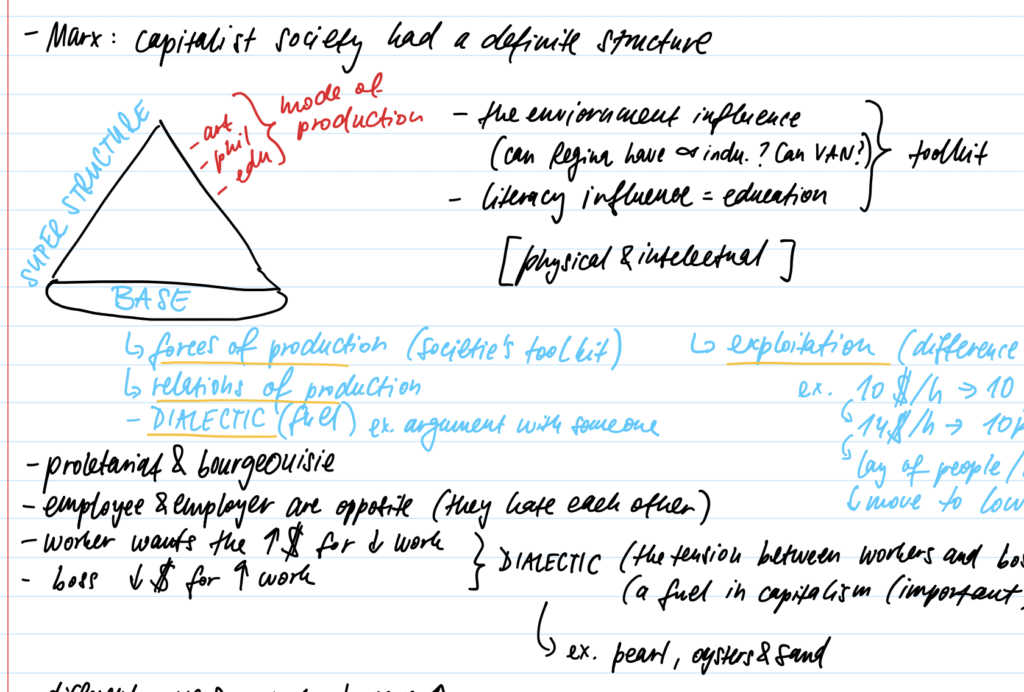 - Marx: capitalist society had a definite structure
SUPER STRUCTURE
- art
- phil
- edu
mode of
production
- the enviornment influence
(can Regina have indu.? Can VAN?)
toolkit
- literacy influence = education
[physical & intelectual]
BASE
↳ forces of production (societie's toolkit)
↳ relations of production
- DIALECTIC (fuel) ex. argument with someone
↳ exploitation (difference
ex. 10$/h → 10
↳ 14$/h → 10
↳ lay of people /
↳ move to low
- proletariat & bourgeouisie
- employee & employer are opposite (they hate each other)
- worker wants the ↑$ for ↓ work
- boss ↓$ for ↑ work
DIALECTIC (the tension between workers and bos
(a fuel in capitalism (important
↳ ex. pearl, oysters & sand